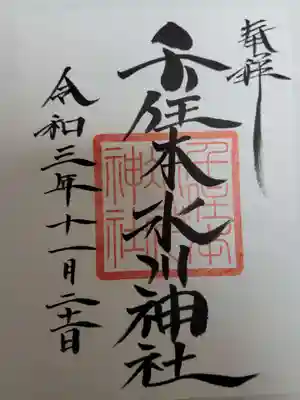 奉拝
千住本氷川神社
千住本
神社
令和三年十一月二十一日